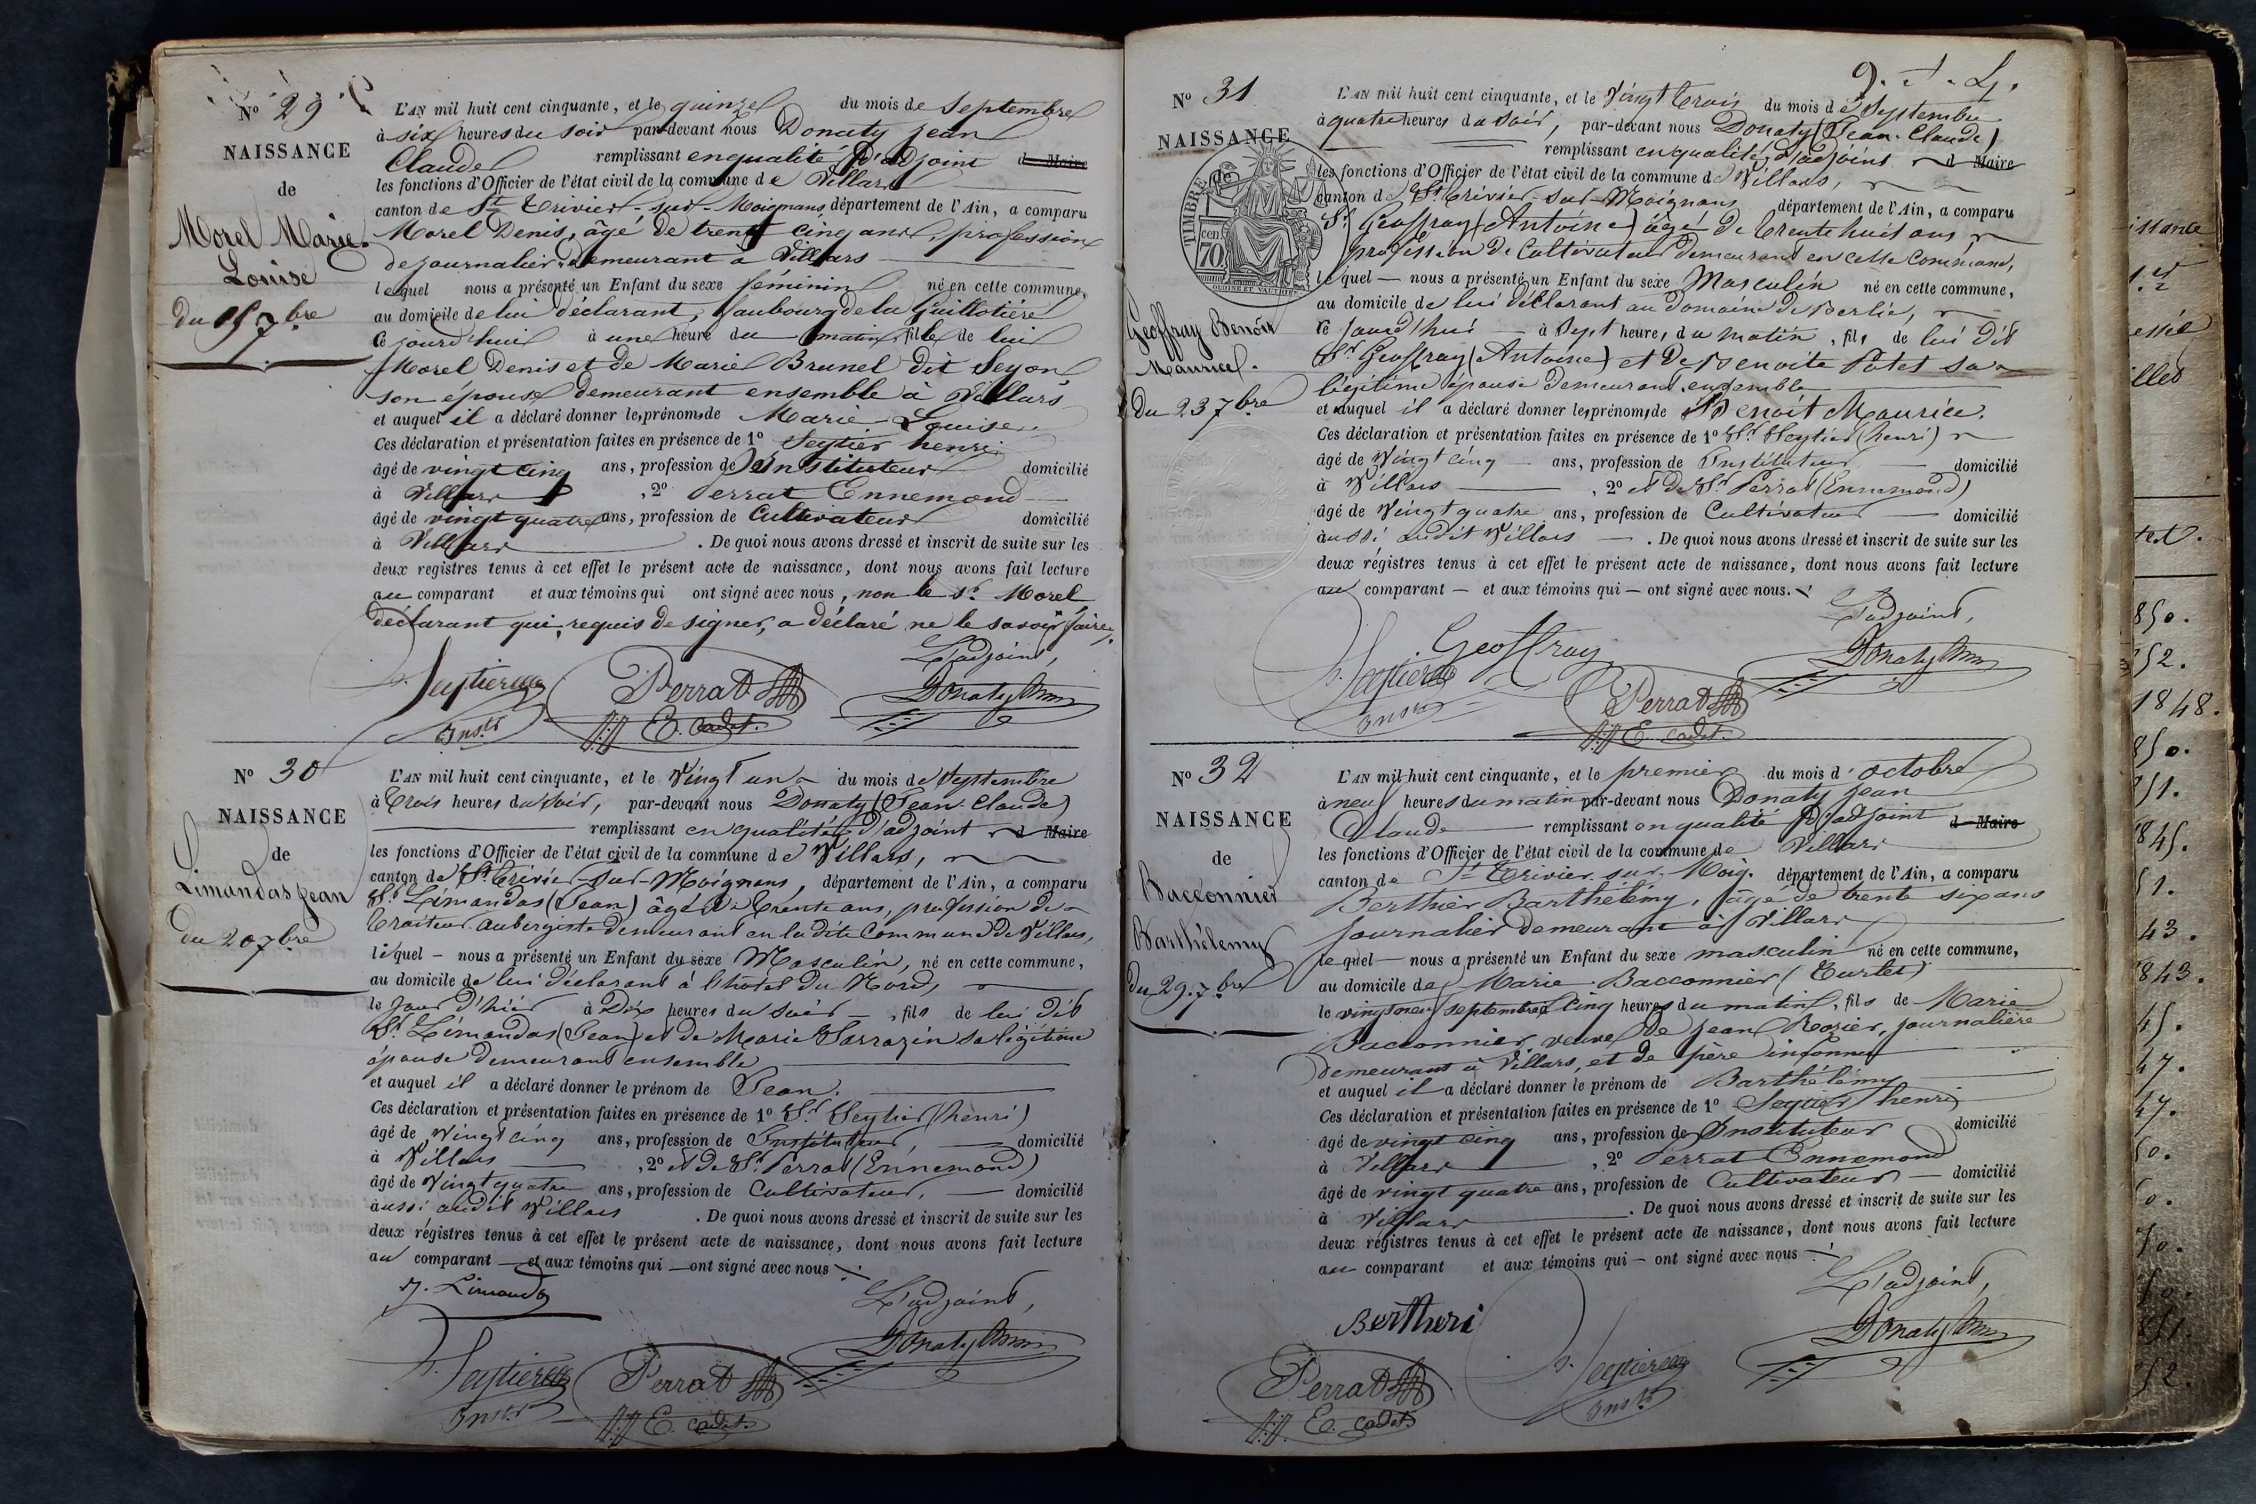 No 29
NAISSANCE
de
Morel Marie
Louise
du 15 7bre
L'AN mil huit cent cinquante, et le quinze du mois de Septembre
à six heures du soir par-devant nous Donaty Jean
Claude remplissant en qualité d'adjoint d Maire
les fonctions d'Officier de l'état civil de la commune de Villars
canton de St Trivier-sur-Moignans département de l'Ain, a comparu
Morel Denis, âgé de trente cinq ans, profession
de journalier demeurant à Villars
lequel nous a présenté un Enfant du sexe féminin né en cette commune,
au domicile de lui déclarant, faubourg de la Guillotière
ce jourd'hui à une heure du matin, fille de lui
Morel Denis et de Marie Brunel dit Seyon
son épouse demeurant ensemble à Villars
et auquel il a déclaré donner les prénoms de Marie Louise.
Ces déclaration et présentation faites en présence de 1o Seytier henri
âgé de vingt cinq ans, profession de Instituteur domicilié
à Villars, 2o Perrat Ennemond
âgé de vingt quatre ans, profession de Cultivateur domicilié
à Villars. De quoi nous avons dressé et inscrit de suite sur les
deux registres tenus à cet effet le présent acte de naissance, dont nous avons fait lecture
au comparant et aux témoins qui ont signé avec nous, non le Sr Morel
déclarant qui, requis de signer, a déclaré ne le savoir faire.
L'adjoint,
Seytier Perrat Donaty
Instr E. Cadet.
No 30
NAISSANCE
de
Limandas Jean
du 20 7bre
L'AN mil huit cent cinquante, et le Vingt un du mois de Septembre
à Trois heures du Soir, par-devant nous Donaty (Jean-Claude)
remplissant en qualité d'adjoint d Maire
les fonctions d'Officier de l'état civil de la commune de Villars,
canton de St Trivier-Sur-Moignans, département de l'Ain, a comparu
Sr Limandas (Jean) âgé de Trente ans, profession de
Traiteur aubergiste demeurant en la dite Commune de Villars,
lequel - nous a présenté un Enfant du sexe Masculin, né en cette commune,
au domicile de lui déclarant à l'hôtel du Nord,
le Jour d'hier à Dix heures du Soir, fils de lui dit
Sr Limandas (Jean) et de Marie Sarrazin Sa légitime
épouse demeurant ensemble
et auquel il a déclaré donner le prénom de Jean.
Ces déclaration et présentation faites en présence de 1o Sr Seytier (henri)
âgé de Vingt cinq ans, profession de Instituteur, domicilié
à Villars, 2o et de Sr Perrat (Ennemond)
âgé de Vingt quatre ans, profession de Cultivateur, domicilié
aussi audit Villars. De quoi nous avons dressé et inscrit de suite sur les
deux régistres tenus à cet effet le présent acte de naissance, dont nous avons fait lecture
au comparant et aux témoins qui ont signé avec nous
J. Limandas
L'adjoint,
Seytier Perrat Donaty
Instr E. Cadet.
No 31
NAISSANCE
de
TIMBRE
cen 70
Geoffray Benoît
Maurice.
Du 23 7bre
L'AN mil huit cent cinquante, et le Vingt Trois du mois de Septembre
à quatre heures du Soir, par-devant nous Donaty (Jean-Claude)
remplissant en qualité d'adjoint d Maire
les fonctions d'Officier de l'état civil de la commune de Villars,
canton de St Trivier-Sur-Moignans département de l'Ain, a comparu
Sr Geoffray (Antoine) âgé de Trente huit ans
profession de Cultivateur demeurant en cette Commune,
lequel - nous a présenté un Enfant du sexe Masculin né en cette commune,
au domicile de lui déclarant au domaine de Berlie,
ce Jourd'hui à Sept heures du matin, fils de lui dit
Sr Geoffray (Antoine) et de Benoite Potet sa
légitime épouse demeurant ensemble
et auquel il a déclaré donner les prénoms de Benoît Maurice.
Ces déclaration et présentation faites en présence de 1o Sr Seytier (henri)
âgé de Vingt cinq ans, profession de Instituteur domicilié
à Villars, 2o et de Sr Perrat (Ennemond)
âgé de Vingt quatre ans, profession de Cultivateur domicilié
aussi audit Villars. De quoi nous avons dressé et inscrit de suite sur les
deux régistres tenus à cet effet le présent acte de naissance, dont nous avons fait lecture
au comparant - et aux témoins qui - ont signé avec nous.
L'adjoint,
Geoffray
Seytier Perrat Donaty
Instr E. Cadet.
No 32
NAISSANCE
de
Bacconnier
Barthélemy
du 29. 7bre
L'AN mil huit cent cinquante, et le premier du mois d'octobre
à neuf heures du matin par-devant nous Donaty Jean
Claude remplissant en qualité d'adjoint d Maire
les fonctions d'Officier de l'état civil de la commune de Villars
canton de St Trivier sur Moig. département de l'Ain, a comparu
Berthier Barthélémy, âgé de trente six ans
journalier demeurant à Villars
lequel - nous a présenté un Enfant du sexe masculin né en cette commune,
au domicile de Marie Bacconnier (Curtet)
le vingt neuf septembre à cinq heures du matin, fils de Marie
Bacconnier, veuve de Jean Rozier, journalière
demeurant à Villars, et de père inconnu
et auquel il a déclaré donner le prénom de Barthélémy
Ces déclaration et présentation faites en présence de 1o Seytier henri
âgé de vingt cinq ans, profession de Instituteur domicilié
à Villars, 2o Perrat Ennemond
âgé de vingt quatre ans, profession de Cultivateur domicilié
à Villars. De quoi nous avons dressé et inscrit de suite sur les
deux régistres tenus à cet effet le présent acte de naissance, dont nous avons fait lecture
au comparant et aux témoins qui - ont signé avec nous
L'adjoint,
Bertheri
Perrat Seytier Donaty
E. Cadet Instr
850.
52.
1848.
850.
51.
845.
51.
43.
843.
45.
47.
47.
50.